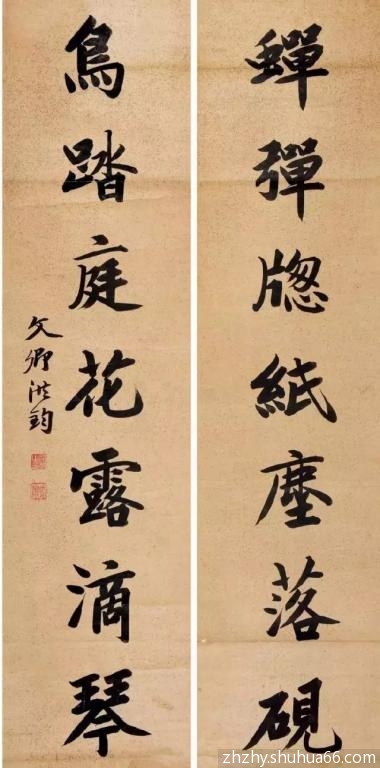 蟬彈牕紙塵落硯
鳥踏庭花露滴琴
文卿洪鈞
zhzhy.shuhua66.com